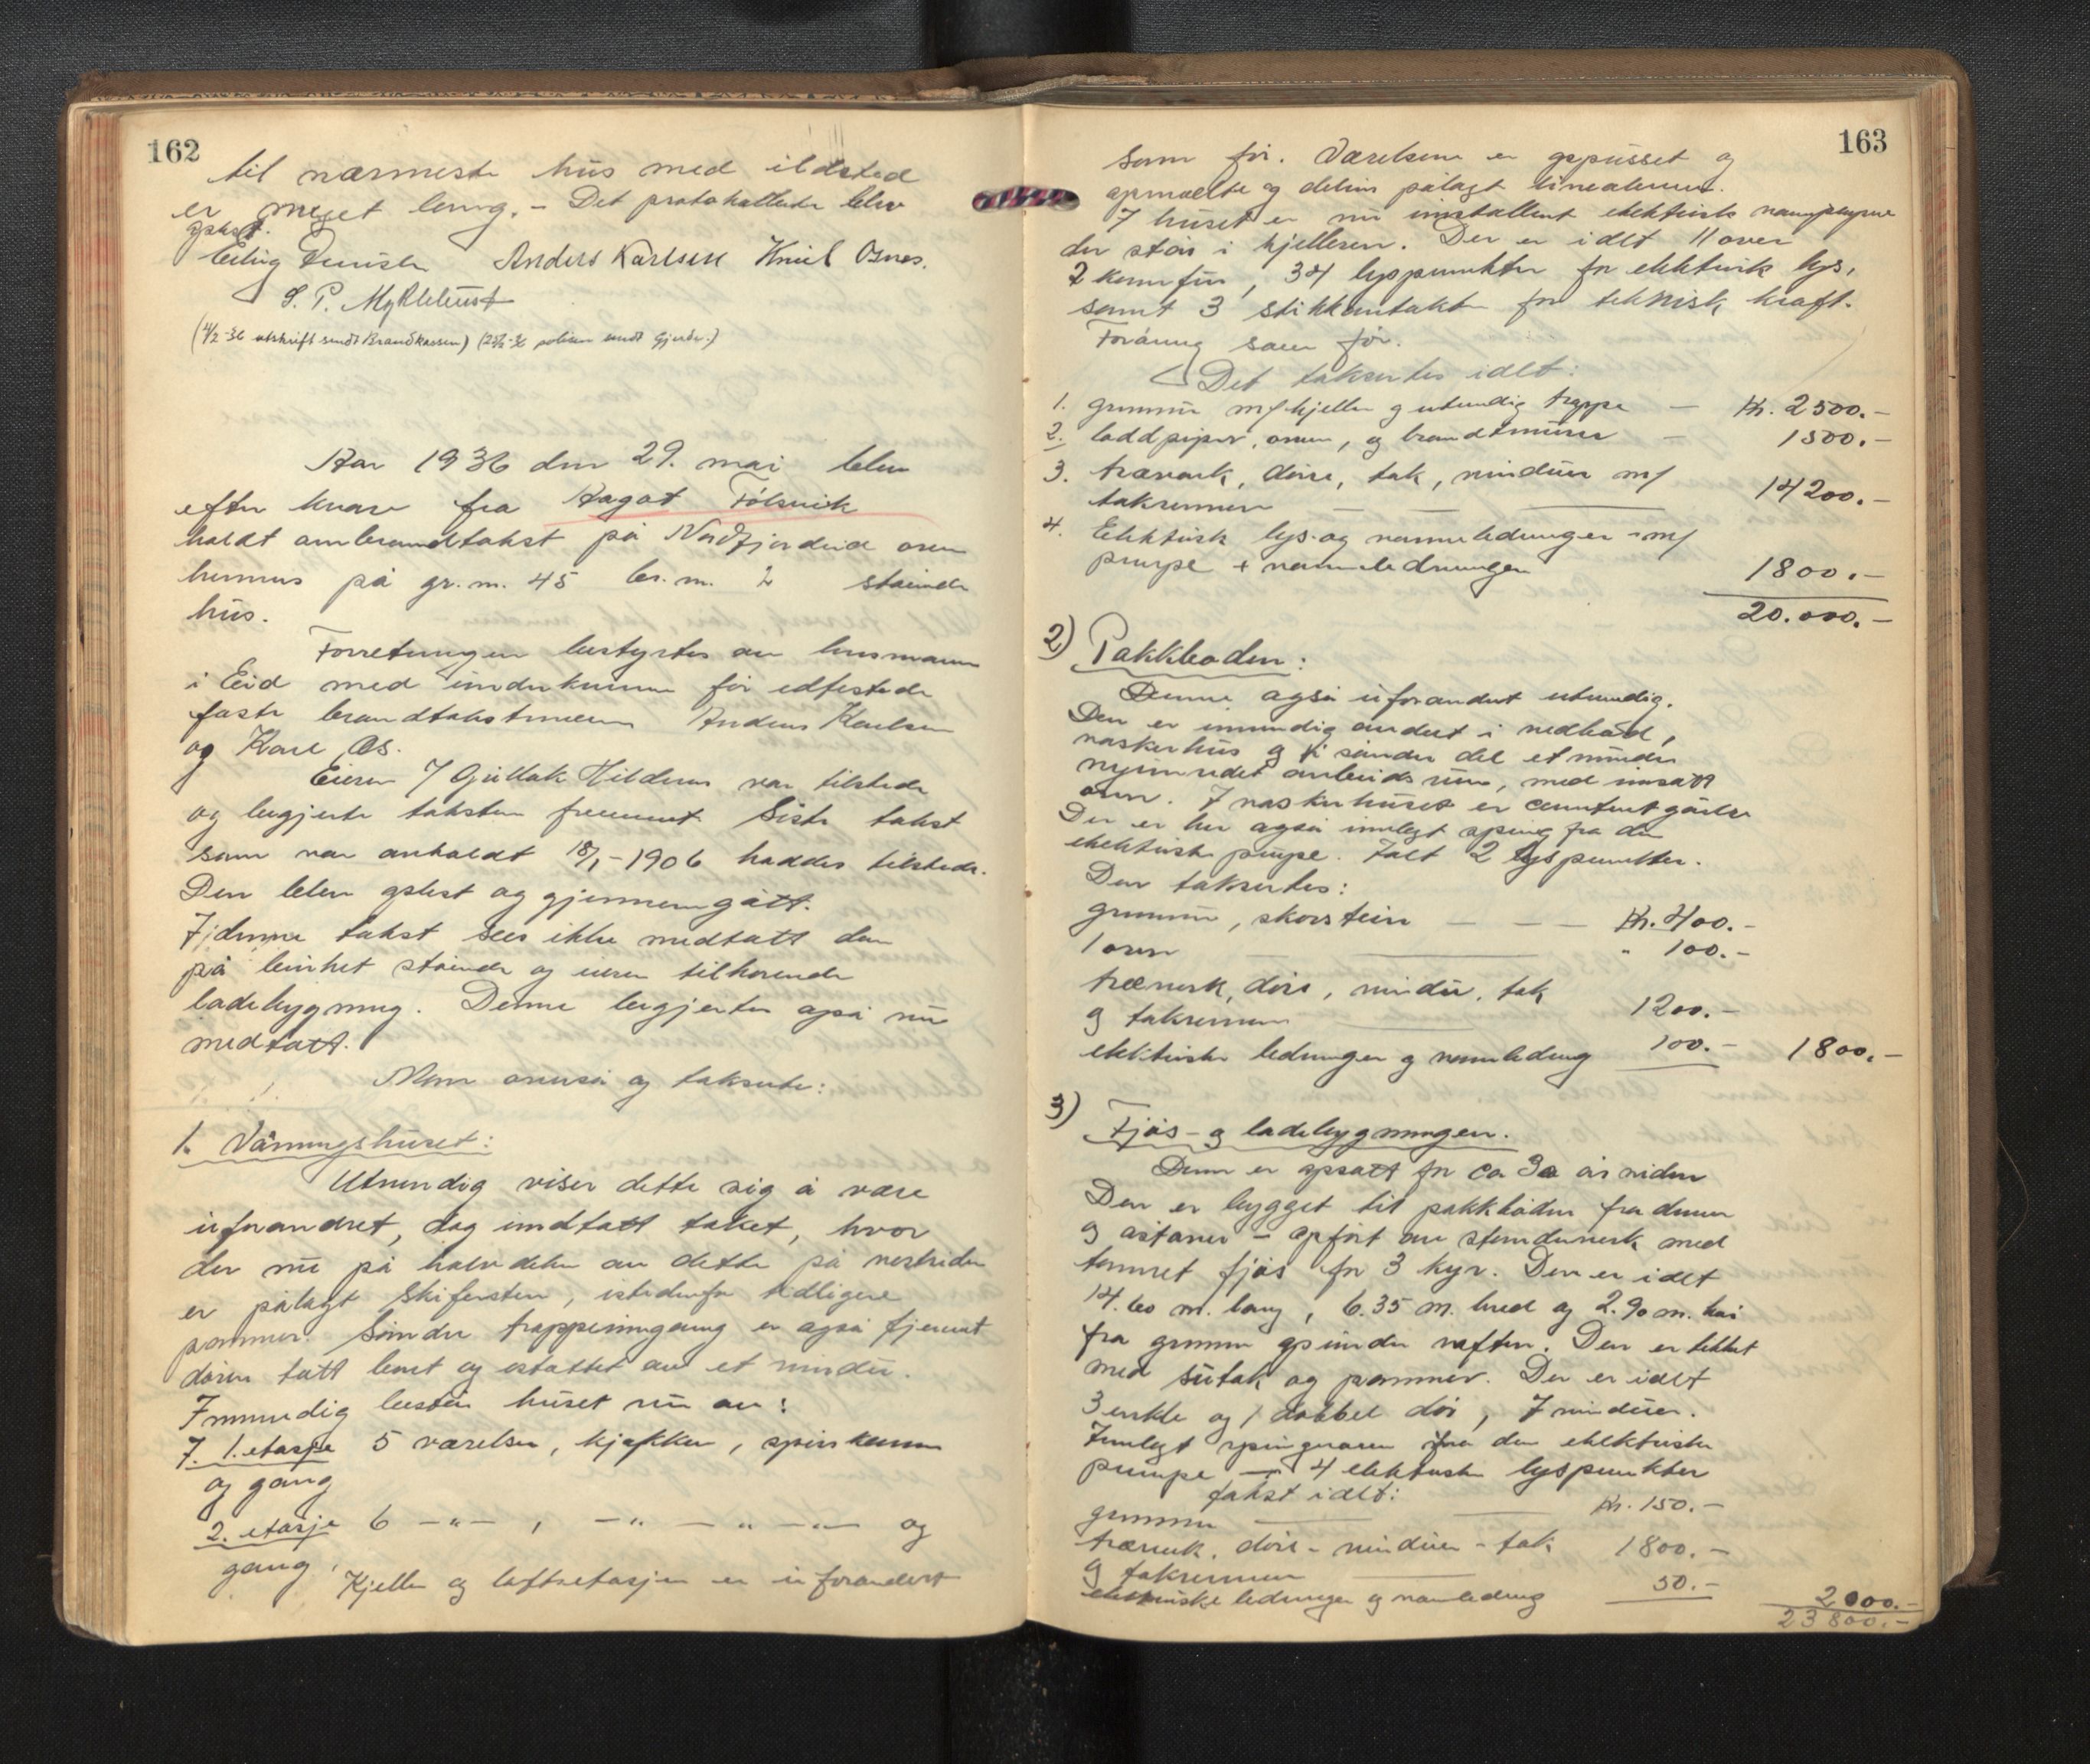 162
til nærmeste hus med ildsted
er meget lang. - Det protokollerte blev
oplest.
Anders Karlsen Knut Osnes.
S. P. Myklebust
(4/2-36 utskrift sendt Brandkassen) polisen sendt
Aar 1936 den 29. mai blev
efter krav fra Aagot Følsvik
holdt ombrandtakst på Nordfjordeid over
hennes på gr.nr. 45 br.nr. 2 stående
hus.
Forretningen bestyrtes av lensmann
i Eid med underkunne før edfestede
faste brandtakstmenn Anders Karlsen
og Karl Os.
Eieren v/ Gullak Hildenes var tilstede
og begjerte taksten fremmet. Siste takst
som var avholdt 18/1-1906 haddes tilstede.
Den blev oplest og gjennemgått.
I denne takst sees ikke medtatt den
på bruket stående og eieren tilhørende
ladebygning. Denne begjertes også nu
medtatt.
Man overså og takserte:
1. Våningshuset:
Utvendig viser dette sig å være
uforandret, dog undtatt taket, hvor
der nu på halvdelen av dette på vestsiden
er pålagt skifersten, istedenfor tidligere
panner. Søndre trappeinngang er også fjernet
døren tatt bort og erstattet av et vindu.
Innvendig består huset nu av:
I. 1. etasje 5 værelser, kjøkken, spiskammer
og gang
2. etasje 6 -"- , -"- -"- og
gang,
Kjeller og loftsetasjen er uforandert
163
som før. Værelsene er oppusset og
opmalte og delvis pålagt linoleum.
I huset er nu installert elektrisk vannpumpe
der står i kjelleren. Der er idlt 11 over
2 komfur, 34 lyspunkter for elektrisk lys,
samt 3 stikkontakter for teknisk kraft.
Foråring som før.
Det takseres idlt:
1. grunnmur m/ kjeller og utvendig trappe - Kr. 2500.-
2. loddpiper, ovner, og brandtmurer - 1500.-
3. træverk, døre, tak, vinduer m/
takrenner - - - 14200.-
4. Elektrisk lys- og varmeledninger - m/
pumpe + vannledninger 1800.-
20.000.-
2) Pakkboden:
Denne også uforandret utvendig.
Den er innvendig endret i vedbod,
vaskerhus og i søndre del et mindre
nyinnredet arbeidsrum, med innsatt
ovn. I vaskerhuset er cementgulv
Der er her også innlagt spring fra den
elektriske pumpe. Ialt 2 lyspunkter.
Den takseres:
grunnmur, skorstein - - - Kr. 400.-
1 ovn - " 100.-
træverk, døre, vinduer, tak
og takrenner 1200.-
elektriske ledninger og vannledning 100.- 1800.-
3) Fjøs- og ladebygningen.
Denne er opsatt for ca 30 år siden
Den er bygget til pakkboden fra denne
og østover - opført av stenderverk med
tømret fjøs for 3 kyr. Den er idlt
14.60 m. lang, 6.35 m. bred og 2.90 m. høi
fra grunnen op under raften. Den er tekket
med sutak og panner. Der er idlt
3 enkle og 1 dobbel dør, 7 vinduer.
Innlagt springvann fra den elektriske
pumpe - 4 elektriske lyspunkter
takst idlt:
grunnmur Kr. 150.-
træverk, døre - vinduer - tak 1800.-
og takrenner
elektriske ledninger og vannledning 50.- 2000.-
23800.-